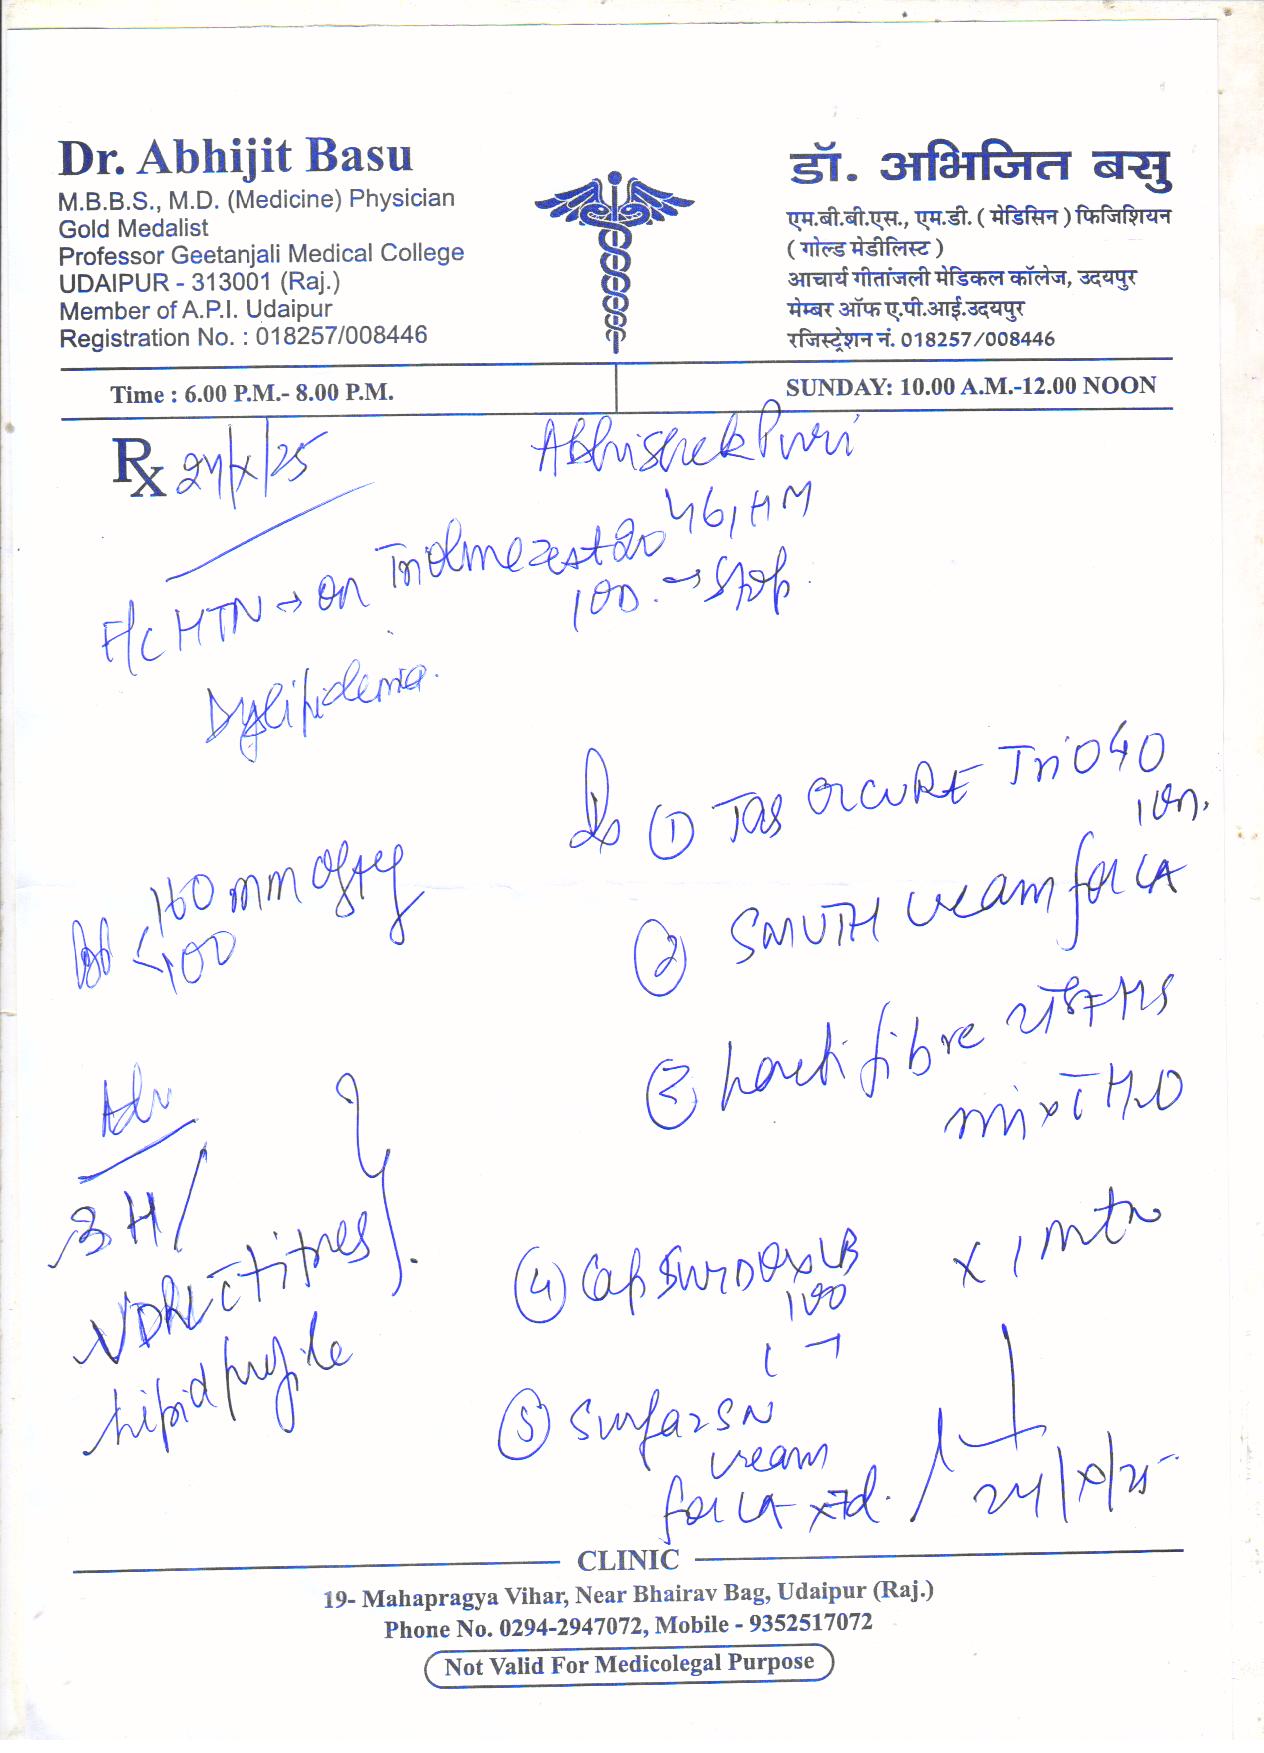 Dr. Abhijit Basu
M.B.B.S., M.D. (Medicine) Physician
Gold Medalist
Professor Geetanjali Medical College
UDAIPUR - 313001 (Raj.)
Member of A.P.I. Udaipur
Registration No. : 018257/008446
डॉ. अभिजित बसु
एम.बी.बी.एस., एम.डी. ( मेडिसिन ) फिजिशियन
( गोल्ड मेडीलिस्ट )
आचार्य गीतांजली मेडिकल कॉलेज, उदयपुर
मेम्बर ऑफ ए.पी.आई.उदयपुर
रजिस्ट्रेशन नं. 018257/008446
Time : 6.00 P.M.- 8.00 P.M.
SUNDAY: 10.00 A.M.-12.00 NOON
Rx 24/X/25
Abhishek Puri
46,
HTN → on Triolmezest 20
1 OD. → Stop.
Dyslipidemia.
160 mm of Hg
100
Adv
VDRL titres
Lipid profile
① TAB OLCURE Trio 40
② SMUTH cream for LA
③ Lactifibre HS
mix H2O
④ Cap LB
x 1 mth
⑤ Surfaz SN
cream
for LA x 7d.
24/X/25
CLINIC
19- Mahapragya Vihar, Near Bhairav Bag, Udaipur (Raj.)
Phone No. 0294-2947072, Mobile - 9352517072
Not Valid For Medicolegal Purpose